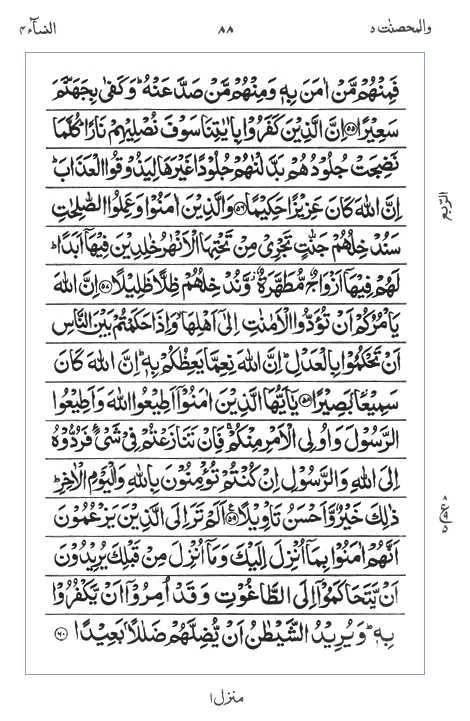 والمحصنٰت ٥ ٨٨ النسآء ٤
فَمِنْهُمْ مَّنْ اٰمَنَ بِهٖ وَمِنْهُمْ مَّنْ صَدَّ عَنْهُ ؕ وَكَفٰى بِجَهَنَّمَ
سَعِيْرًا ﴿٥٥﴾ اِنَّ الَّذِيْنَ كَفَرُوْا بِاٰيٰتِنَا سَوْفَ نُصْلِيْهِمْ نَارًا ؕ كُلَّمَا
نَضِجَتْ جُلُوْدُهُمْ بَدَّلْنٰهُمْ جُلُوْدًا غَيْرَهَا لِيَذُوْقُوا الْعَذَابَ ؕ
اِنَّ اللّٰهَ كَانَ عَزِيْزًا حَكِيْمًا ﴿٥٦﴾ وَالَّذِيْنَ اٰمَنُوْا وَعَمِلُوا الصّٰلِحٰتِ
سَنُدْخِلُهُمْ جَنّٰتٍ تَجْرِيْ مِنْ تَحْتِهَا الْاَنْهٰرُ خٰلِدِيْنَ فِيْهَاۤ اَبَدًا ؕ
لَهُمْ فِيْهَاۤ اَزْوَاجٌ مُّطَهَّرَةٌ ۫ وَّنُدْخِلُهُمْ ظِلًّا ظَلِيْلًا ﴿٥٧﴾ اِنَّ اللّٰهَ
يَاْمُرُكُمْ اَنْ تُؤَدُّوا الْاَمٰنٰتِ اِلٰۤى اَهْلِهَا ۙ وَاِذَا حَكَمْتُمْ بَيْنَ النَّاسِ
اَنْ تَحْكُمُوْا بِالْعَدْلِ ؕ اِنَّ اللّٰهَ نِعِمَّا يَعِظُكُمْ بِهٖ ؕ اِنَّ اللّٰهَ كَانَ
سَمِيْعًۢا بَصِيْرًا ﴿٥٨﴾ يٰۤاَيُّهَا الَّذِيْنَ اٰمَنُوْۤا اَطِيْعُوا اللّٰهَ وَاَطِيْعُوا
الرَّسُوْلَ وَاُولِى الْاَمْرِ مِنْكُمْ ۚ فَاِنْ تَنَازَعْتُمْ فِيْ شَيْءٍ فَرُدُّوْهُ
اِلَى اللّٰهِ وَالرَّسُوْلِ اِنْ كُنْتُمْ تُؤْمِنُوْنَ بِاللّٰهِ وَالْيَوْمِ الْاٰخِرِ ؕ
ذٰلِكَ خَيْرٌ وَّاَحْسَنُ تَاْوِيْلًا ﴿٥٩﴾ اَلَمْ تَرَ اِلَى الَّذِيْنَ يَزْعُمُوْنَ
اَنَّهُمْ اٰمَنُوْا بِمَاۤ اُنْزِلَ اِلَيْكَ وَمَاۤ اُنْزِلَ مِنْ قَبْلِكَ يُرِيْدُوْنَ
اَنْ يَّتَحَاكَمُوْۤا اِلَى الطَّاغُوْتِ وَقَدْ اُمِرُوْۤا اَنْ يَّكْفُرُوْا
بِهٖ ؕ وَيُرِيْدُ الشَّيْطٰنُ اَنْ يُّضِلَّهُمْ ضَلٰلًۢا بَعِيْدًا ﴿٦٠﴾
الربع
ع ٨ ٩ ٥
منزل ١